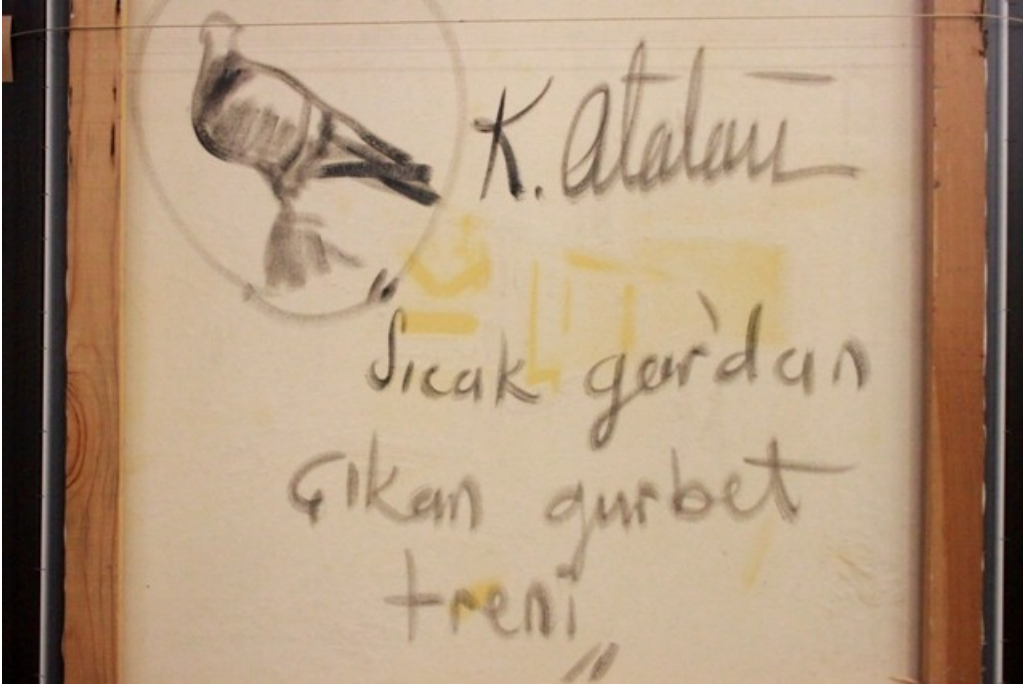 K.
"Sıcak gar'dan
Çıkan gurbet
treni"